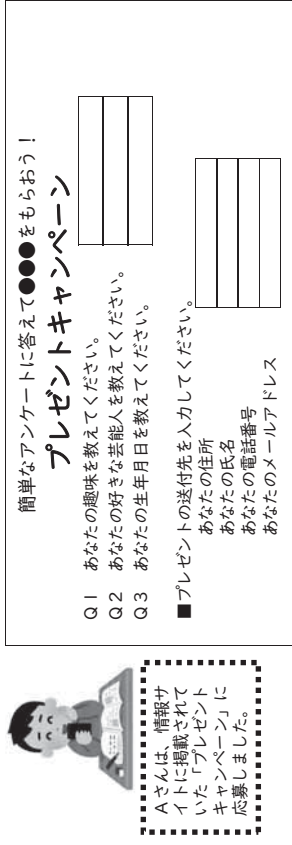 簡単なアンケートに答えて●●●をもらおう！
プレゼントキャンペーン
Q1　あなたの趣味を教えてください。
Q2　あなたの好きな芸能人を教えてください。
Q3　あなたの生年月日を教えてください。
■プレゼントの送付先を入力してください。
あなたの住所
あなたの氏名
あなたの電話番号
あなたのメールアドレス
Aさんは、情報サ
イトに掲載されて
いた「プレゼント
キャンペーン」に
応募しました。